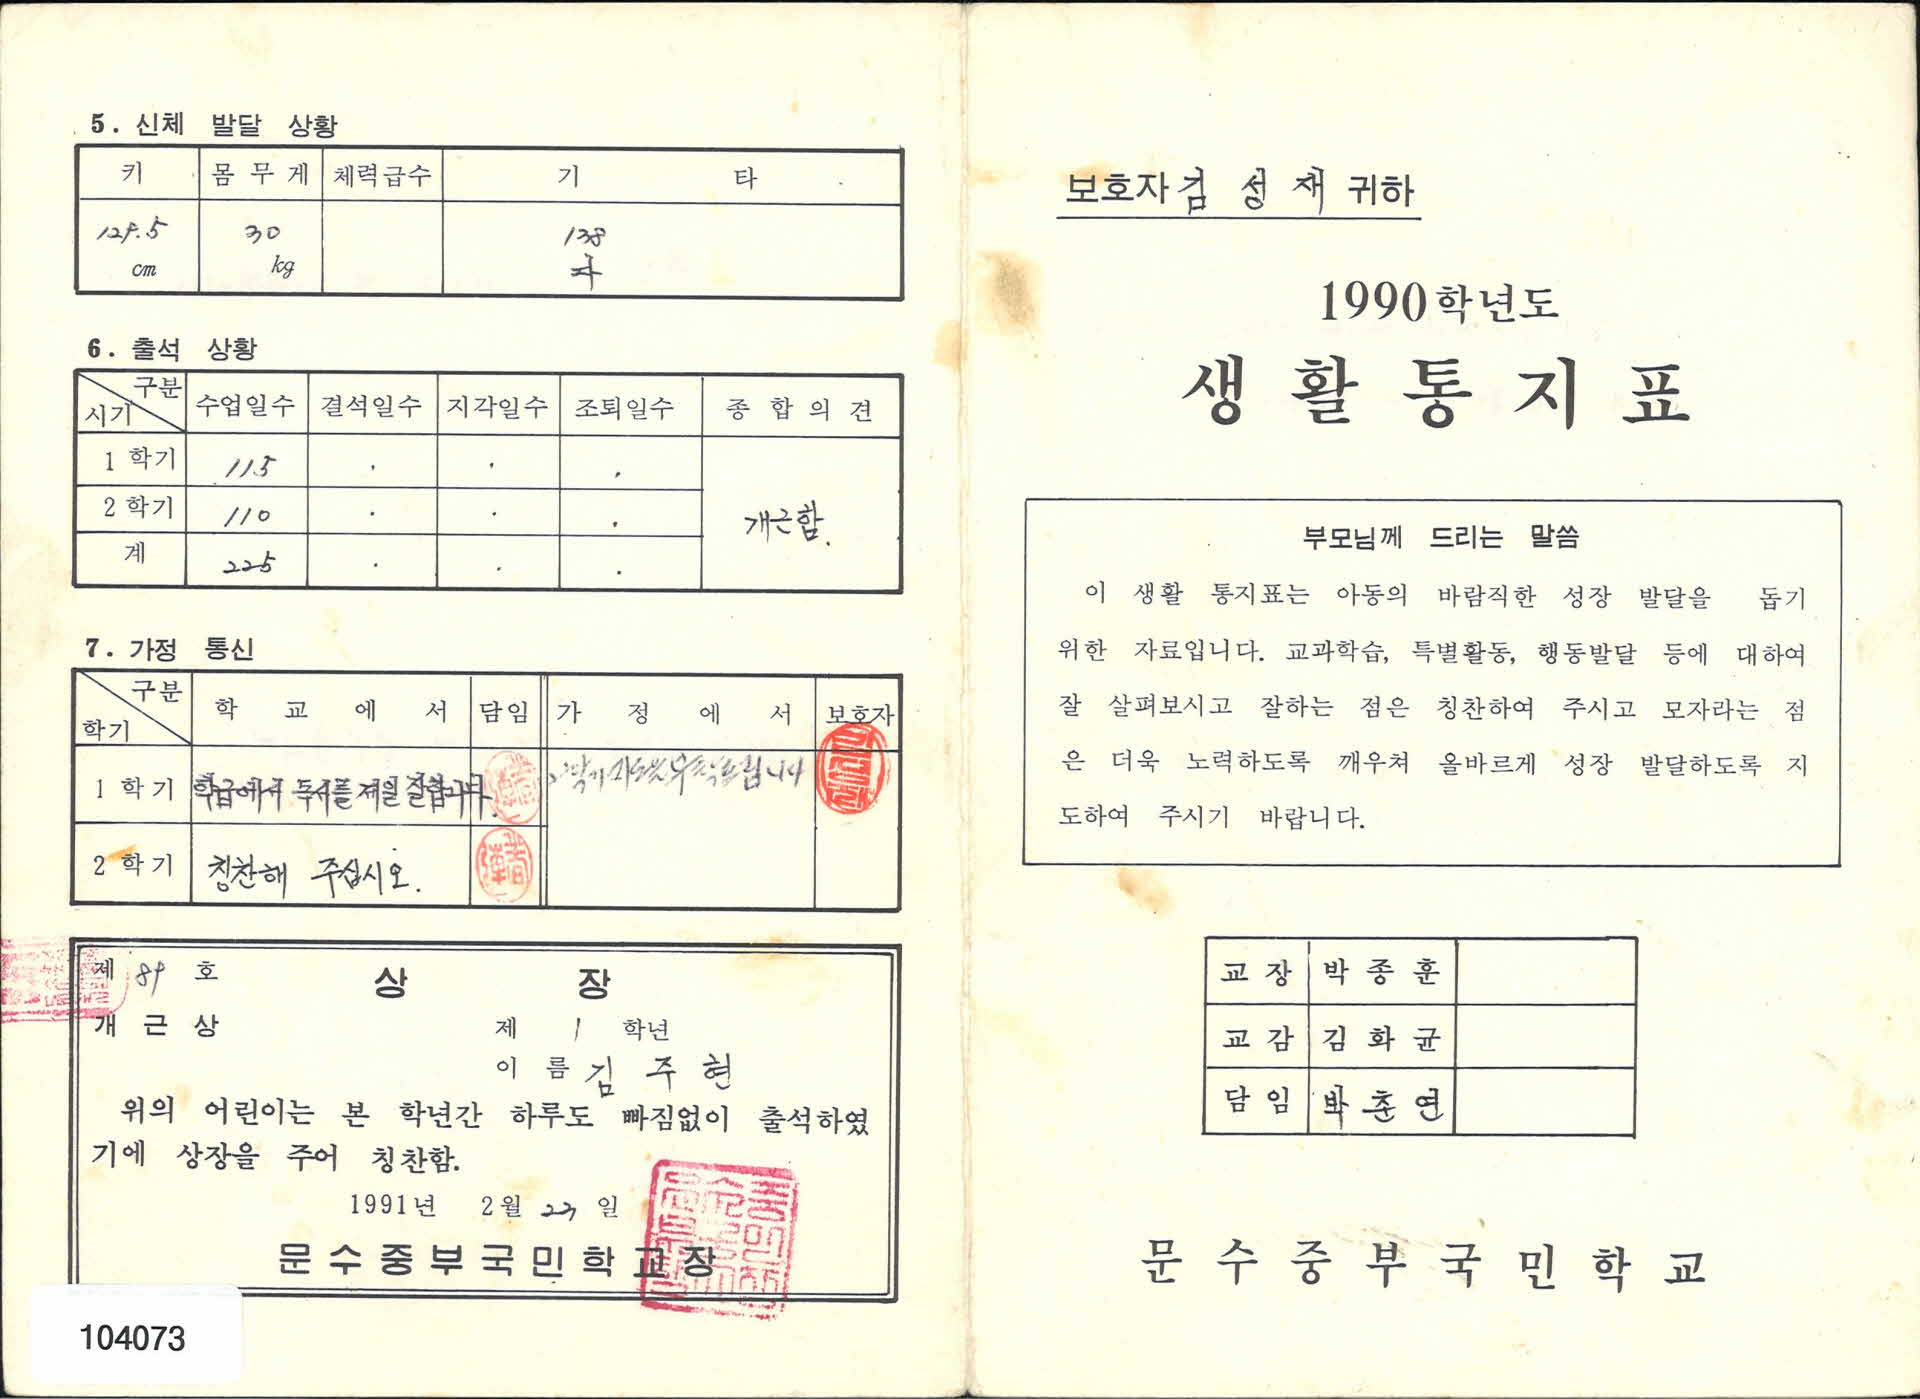 5. 신체 발달 상황
키 몸무게 체력급수 기 타
129.5 cm 30 kg 138 수
6. 출석 상황
구분 시기 수업일수 결석일수 지각일수 조퇴일수 종합의견
1 학기 115 . . .
2 학기 110 . . .
개근함.
계 225 . . .
7. 가정 통신
구분 학기 학교에서 담임 가정에서 보호자
1 학기 학급에서 독서를 제일 잘합니다. 부탁드립니다
2 학기 칭찬해 주십시오.
제 89 호 상 장
개근상 제 1 학년
이름 김주현
위의 어린이는 본 학년간 하루도 빠짐없이 출석하였
기에 상장을 주어 칭찬함.
1991년 2월 23일
문수중부국민학교장
104073
보호자 김성재 귀하
1990학년도
생활통지표
부모님께 드리는 말씀
이 생활 통지표는 아동의 바람직한 성장 발달을 돕기
위한 자료입니다. 교과학습, 특별활동, 행동발달 등에 대하여
잘 살펴보시고 잘하는 점은 칭찬하여 주시고 모자라는 점
은 더욱 노력하도록 깨우쳐 올바르게 성장 발달하도록 지
도하여 주시기 바랍니다.
교장 박종훈
교감 김화균
담임 박춘연
문수중부국민학교